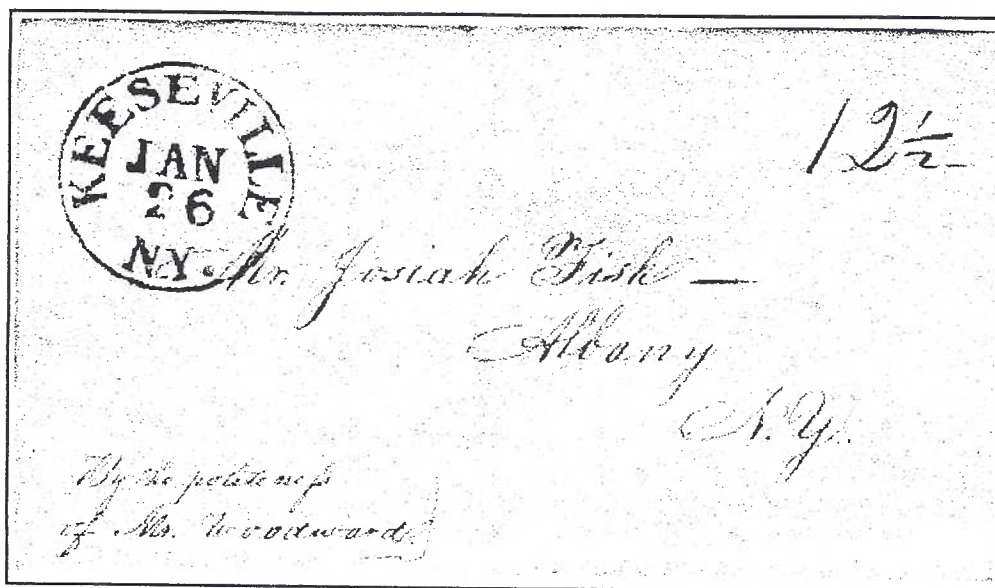 KEESEVILLE
JAN
26
NY.
12 1/2
Mr. Josiah Fish —
Albany
N.Y.
By the politeness
of Mr. Woodward